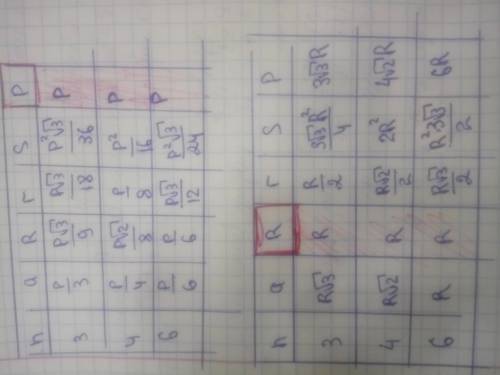 n a R r S P
3 P/3 P√3/9 P√3/18 P²√3/36 P
4 P/4 P√2/8 P/8 P²/16 P
6 P/6 P/6 P√3/12 P²√3/24 P
n a R r S P
3 R√3 R R/2 3√3R²/4 3√3R
4 R√2 R R√2/2 2R² 4√2R
6 R R R√3/2 R²·3√3/2 6R